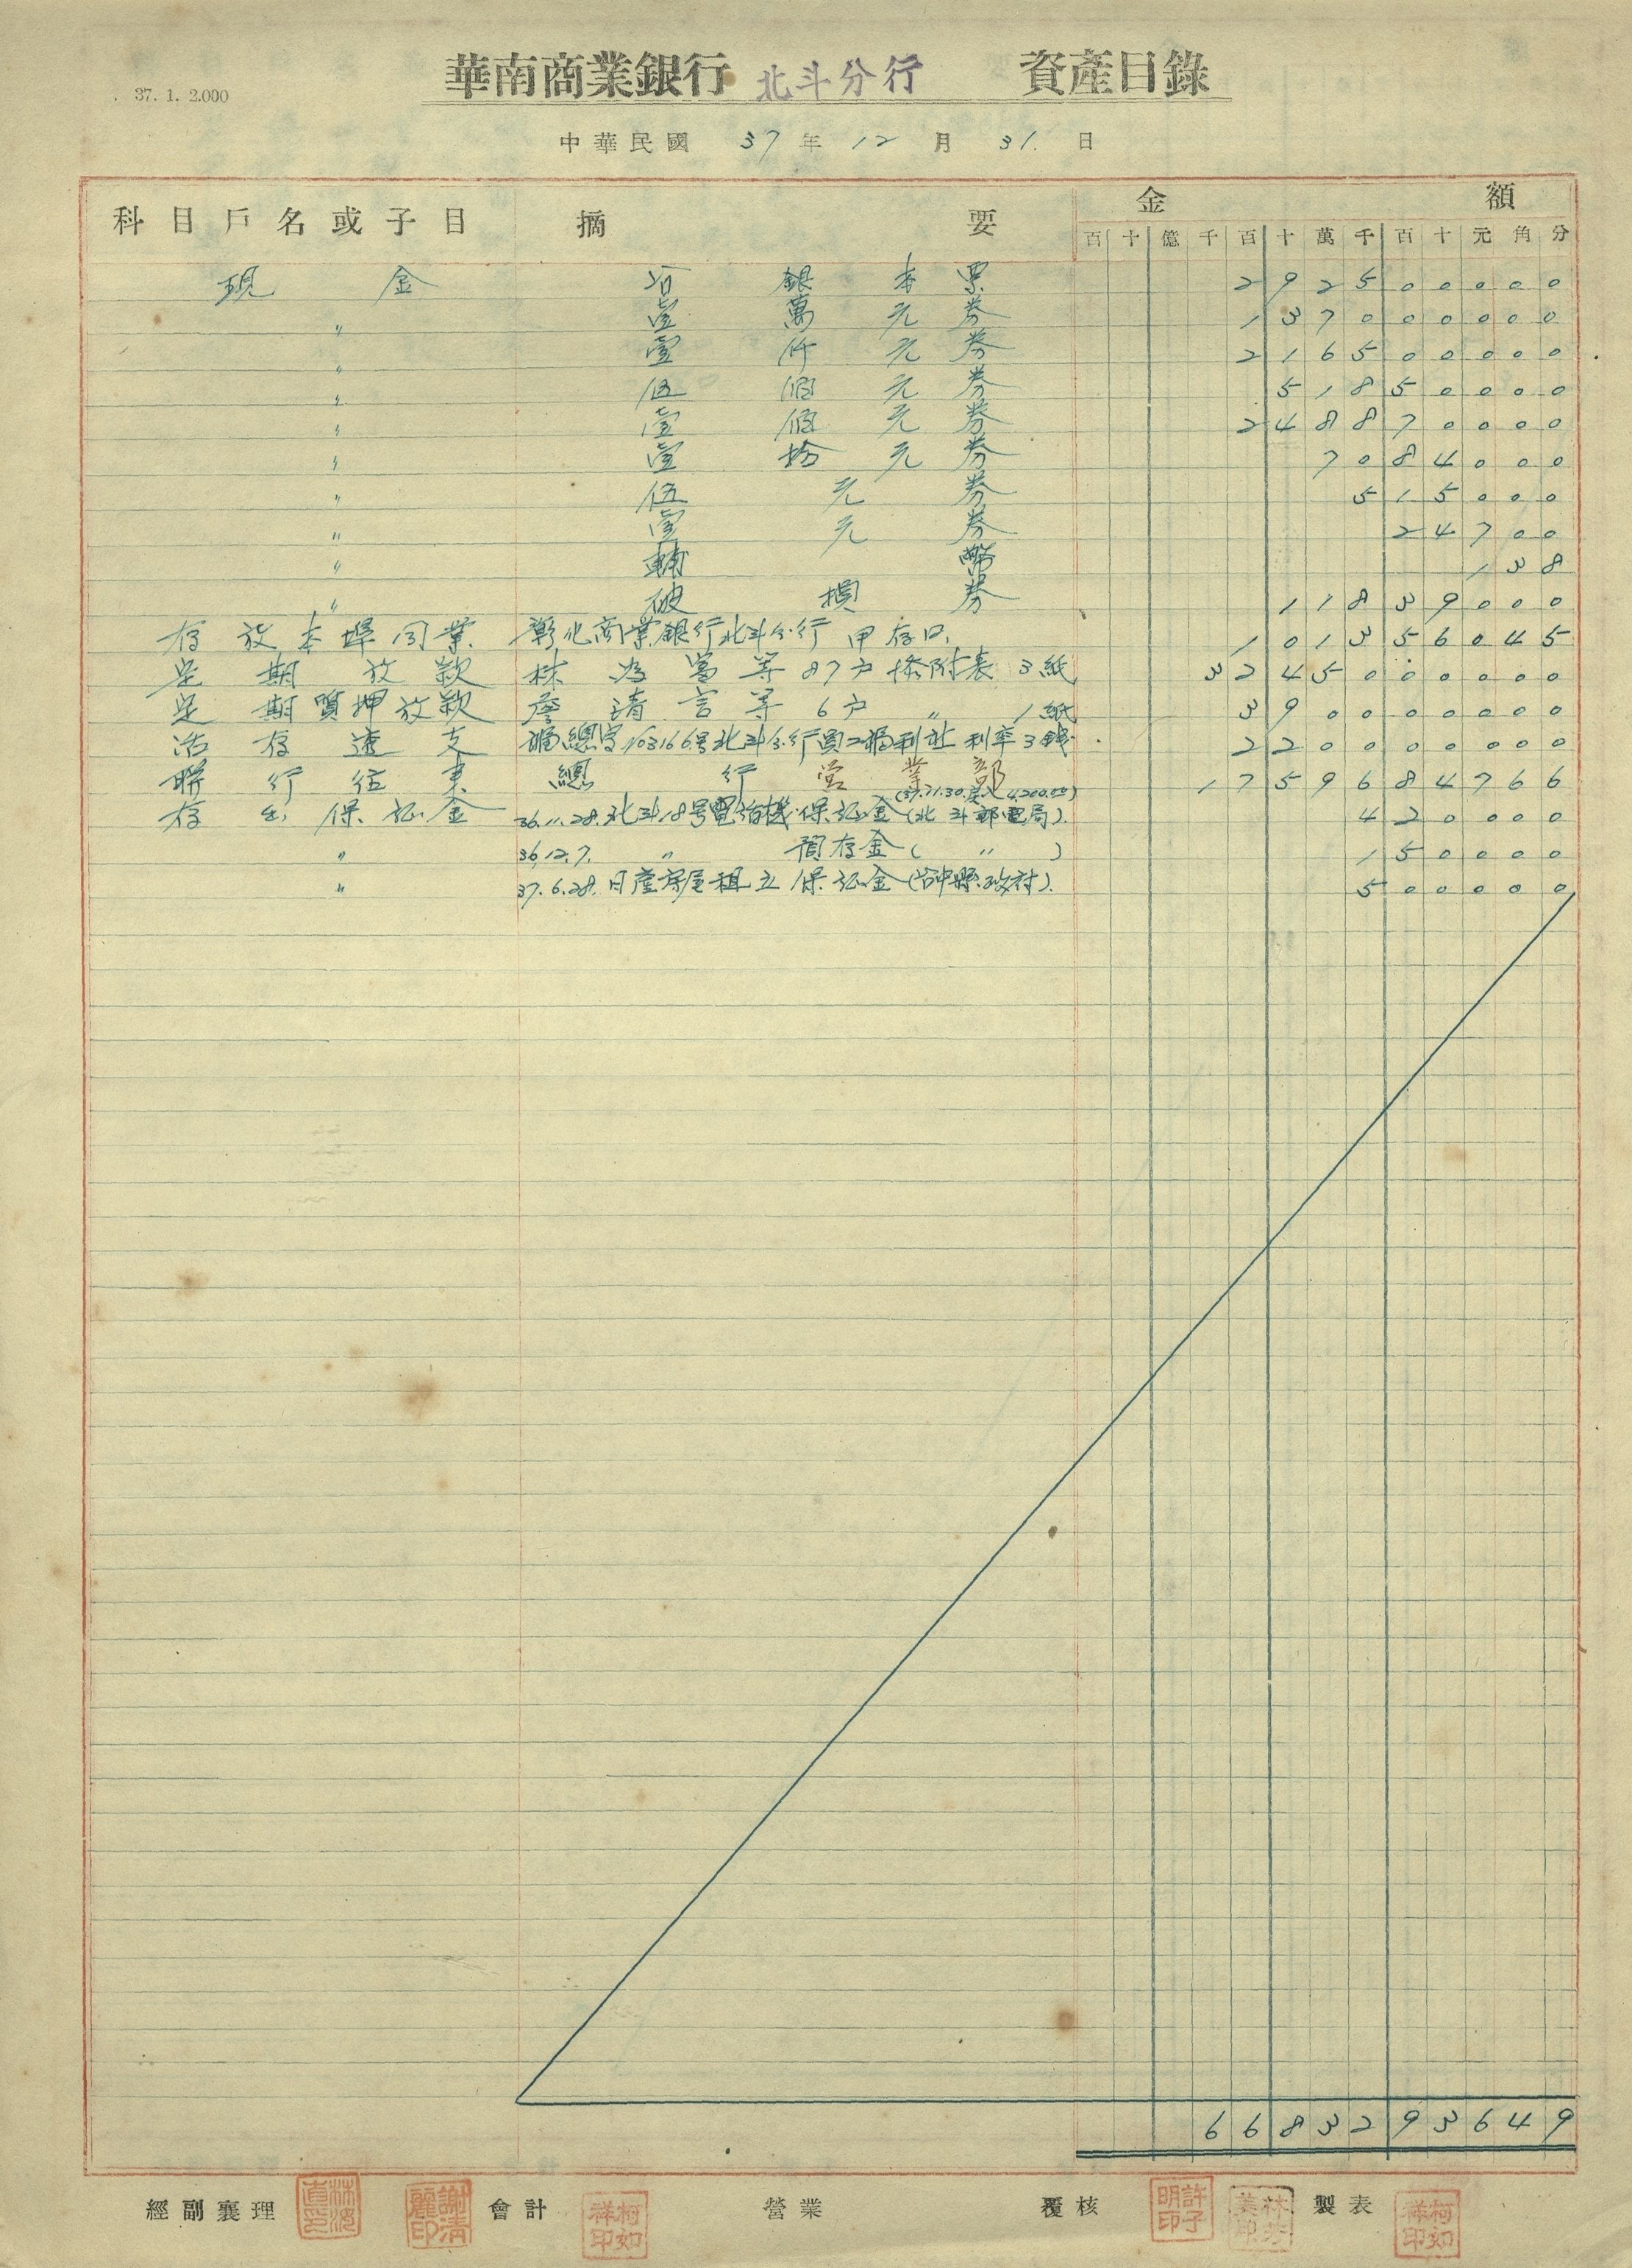 37. 1. 2.000
華南商業銀行 北斗分行 資產目錄
中華民國 37 年 12 月 31. 日
科目戶名或子目 摘要 金額
百 十 億 千 百 十 萬 千 百 十 元 角 分
現金 台銀本票 292500000
〃 壹萬元券 137000000
〃 壹仟元券 216500000
〃 伍佰元券 51850000
〃 壹佰元券 248870000
〃 壹拾元券 7084000
〃 伍元券 515000
〃 壹元券 24700
〃 輔幣 138
〃 破損券 11839000
存放本埠同業 彰化商業銀行北斗分行 甲存口. 101356045
定期放款 林為富等87戶 添附表 3紙 3245000000
定期質押放款 詹清言等 6戶 〃 1紙 390000000
活存透支 福總字103166号北斗分行員工福利社 利率3錢 220000000
聯行往來 總行營業部 1759684766
(37.11.30. 4,200.00)
存出保証金 36.11.28.北斗18号電話機保証金(北斗郵電局). 420000
〃 36.12.7. 〃 預存金( 〃 ) 150000
〃 37.6.28.日產房屋租立保証金(台中縣政府). 500000
6683293649
經副襄理 會計 營業 覆核 製表
謝清麗印 柯如祥印 許子明印 柯如祥印